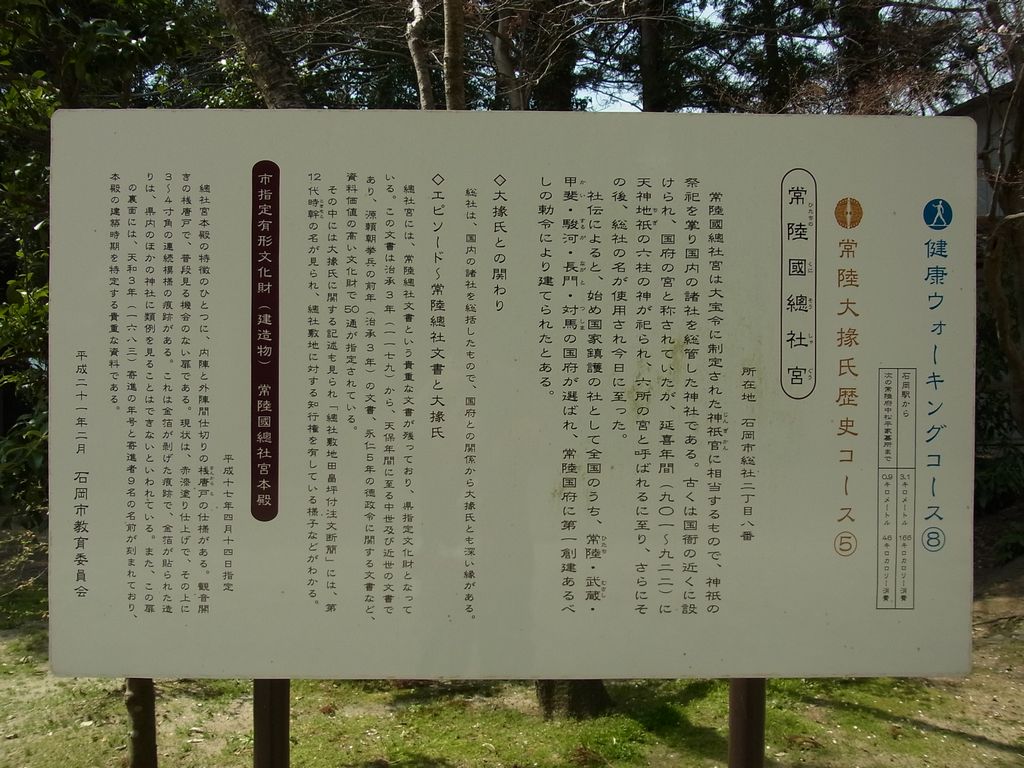 健康ウォーキングコース⑧
石岡駅から 3.1キロメートル 166キロカロリー消費
次の常陸府中松平家墓所まで 0.9キロメートル 46キロカロリー消費
常陸大掾氏歴史コース⑤
常陸國總社宮
所在地 石岡市総社二丁目八番
常陸國總社宮は大宝令に制定された神祇官に相当するもので、神祇の
祭祀を掌り国内の諸社を総管した神社である。古くは国衙の近くに設
けられ、国府の宮と称されていたが、延喜年間(九〇一〜九二二)に
天神地祇の六柱の神が祀られ、六所の宮と呼ばれるに至り、さらにそ
の後、総社の名が使用され今日に至った。
社伝によると、始め国家鎮護の社として全国のうち、常陸・武蔵・
甲斐・駿河・長門・対馬の国府が選ばれ、常陸国府に第一創建あるべ
しの勅令により建てられたとある。
◇大掾氏との関わり
総社は、国内の諸社を総括したもので、国府との関係から大掾氏とも深い縁がある。
◇エピソード〜常陸總社文書と大掾氏
總社宮には、常陸總社文書という貴重な文書が残っており、県指定文化財となって
いる。この文書は治承3年(一一七九)から、天保年間に至る中世及び近世の文書で
あり、源頼朝挙兵の前年(治承3年)の文書、永仁5年の徳政令に関する文書など、
資料価値の高い文化財で50通が指定されている。
その中には大掾氏に関する記述も見られ「總社敷地田畠坪付注文断簡」には、第
12代時幹の名が見られ、總社敷地に対する知行権を有している様子などがわかる。
市指定有形文化財(建造物) 常陸國總社宮本殿
平成十七年四月十四日指定
總社宮本殿の特徴のひとつに、内陣と外陣間仕切りの桟唐戸の仕様がある。観音開
きの桟唐戸で、普段見る機会のない扉である。現状は、赤漆塗り仕上げで、その上に
3〜4寸角の連続模様の痕跡がある。これは金箔が剥げた痕跡で、金箔が貼られた造
りは、県内のほかの神社に類例を見ることはできないといわれている。また、この扉
の裏面には、天和3年(一六八三)寄進の年号と寄進者9名の名前が刻まれており、
本殿の建築時期を特定する貴重な資料である。
平成二十一年二月 石岡市教育委員会